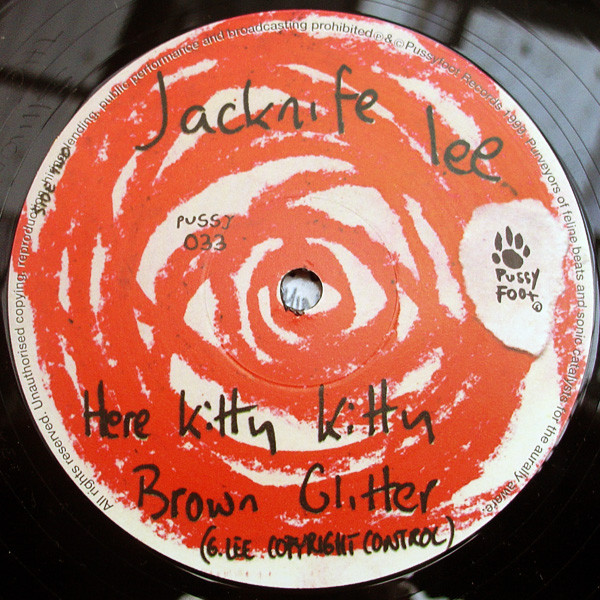 All rights reserved. Unauthorised copying, reproduction, hiring, lending, public performance and broadcasting prohibited ℗ & © Pussyfoot Records 1998. Purveyors of feline beats and sonic catalysts for the aurally aware.
Jacknife
lee
SIDE TWO
PUSSY
033
PUSSY
FOOT ©
Here Kitty Kitty
Brown Glitter
(G. LEE COPYRIGHT CONTROL)